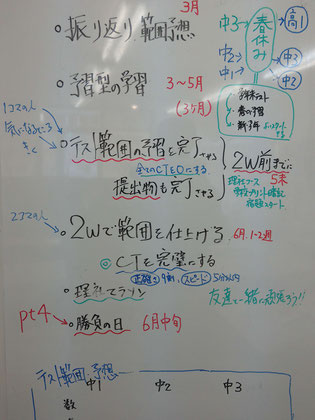 3月
・振り返り範囲予想
中3
春休み
高1
中2
中1
中3
中2
・予習型の学習 3〜5月
(3ヶ月)
・春の学習
・新3年
1コマの人
気になるところ
きく
・テスト範囲の予習を完了させる
全てのCTをOにする
提出物も完了させる
2W前までに
5末
理社コース
2コマの人
・2Wで範囲を仕上げる 6月.1-2週
◎CTを完璧にする
正確さ9割、スピード5分以内
・理社でマラソン
友達と一緒に頑張ろう!!
pt4
・勝負の日 6月中旬
テスト範囲予想
中1 中2 中3
数